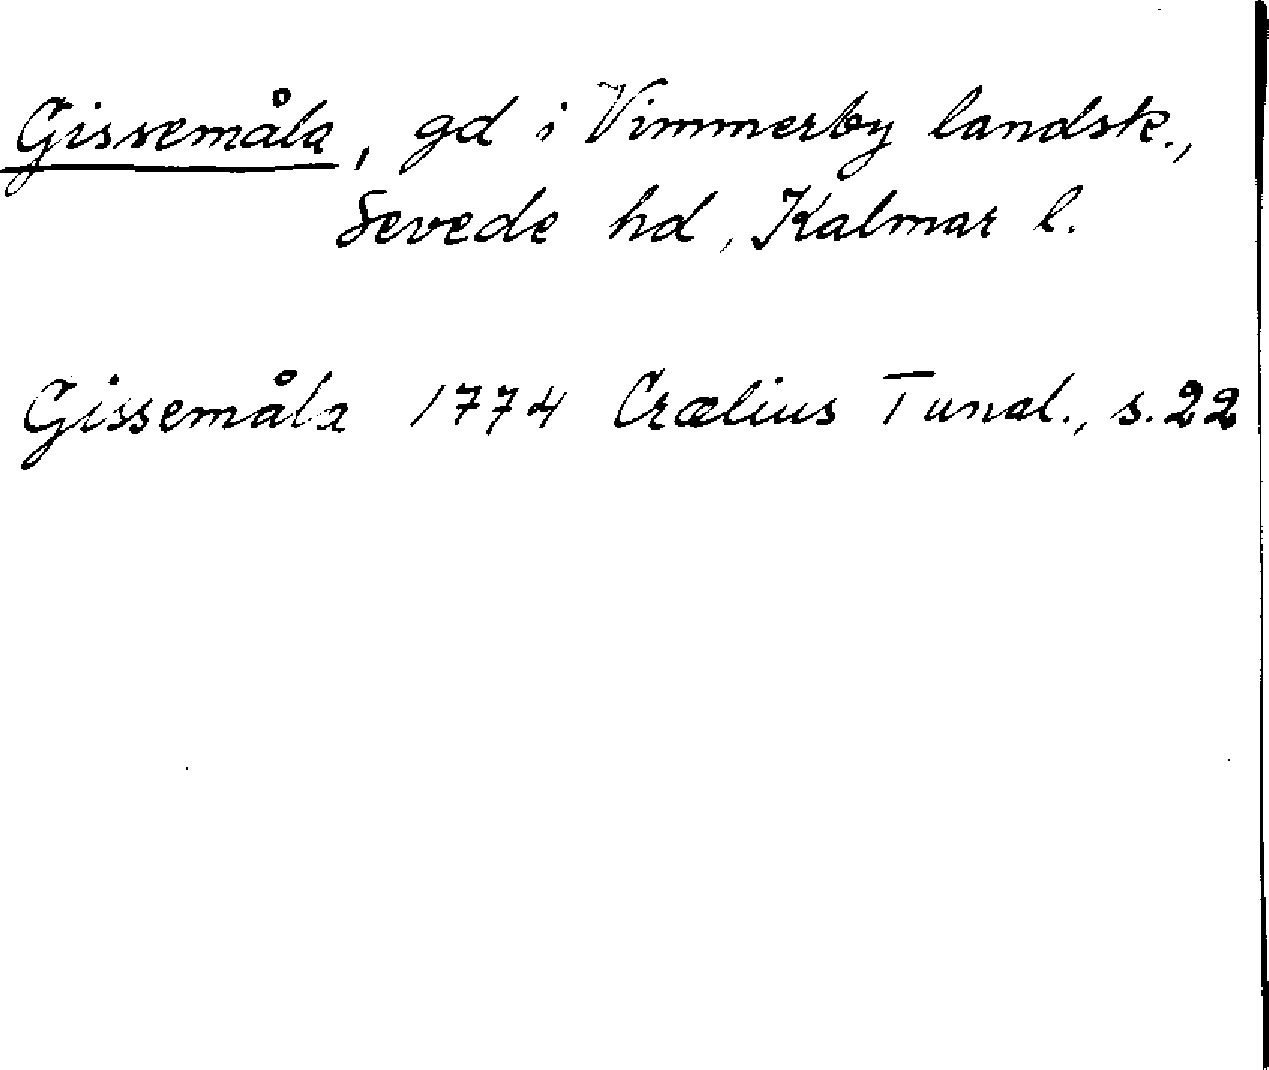 Gissemåla, gd i Vimmerby landsk.,
Sevede hd, Kalmar l.
Gissemåla 1774 Crælius Tunal., s. 22